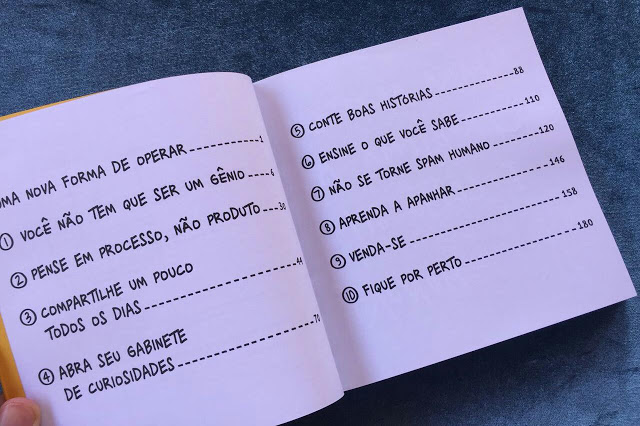 UMA NOVA FORMA DE OPERAR ---------- 1
① VOCÊ NÃO TEM QUE SER UM GÊNIO ---- 6
② PENSE EM PROCESSO, NÃO PRODUTO --- 30
③ COMPARTILHE UM POUCO
TODOS OS DIAS -------------------- 44
④ ABRA SEU GABINETE
DE CURIOSIDADES ------------------ 70
⑤ CONTE BOAS HISTÓRIAS ------------ 88
⑥ ENSINE O QUE VOCÊ SABE ---------- 110
⑦ NÃO SE TORNE SPAM HUMANO -------- 120
⑧ APRENDA A APANHAR --------------- 146
⑨ VENDA-SE ------------------------ 158
⑩ FIQUE POR PERTO ----------------- 180